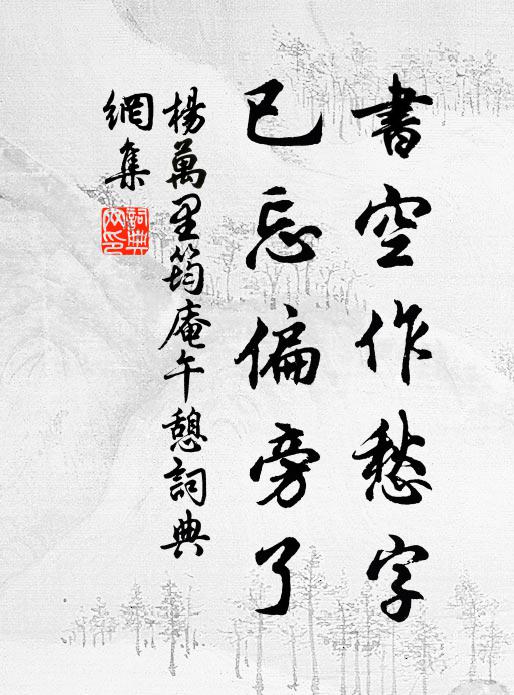 書空作愁字
已忘偏旁了
楊萬里筠庵午憩詞典
網集
詞典網印